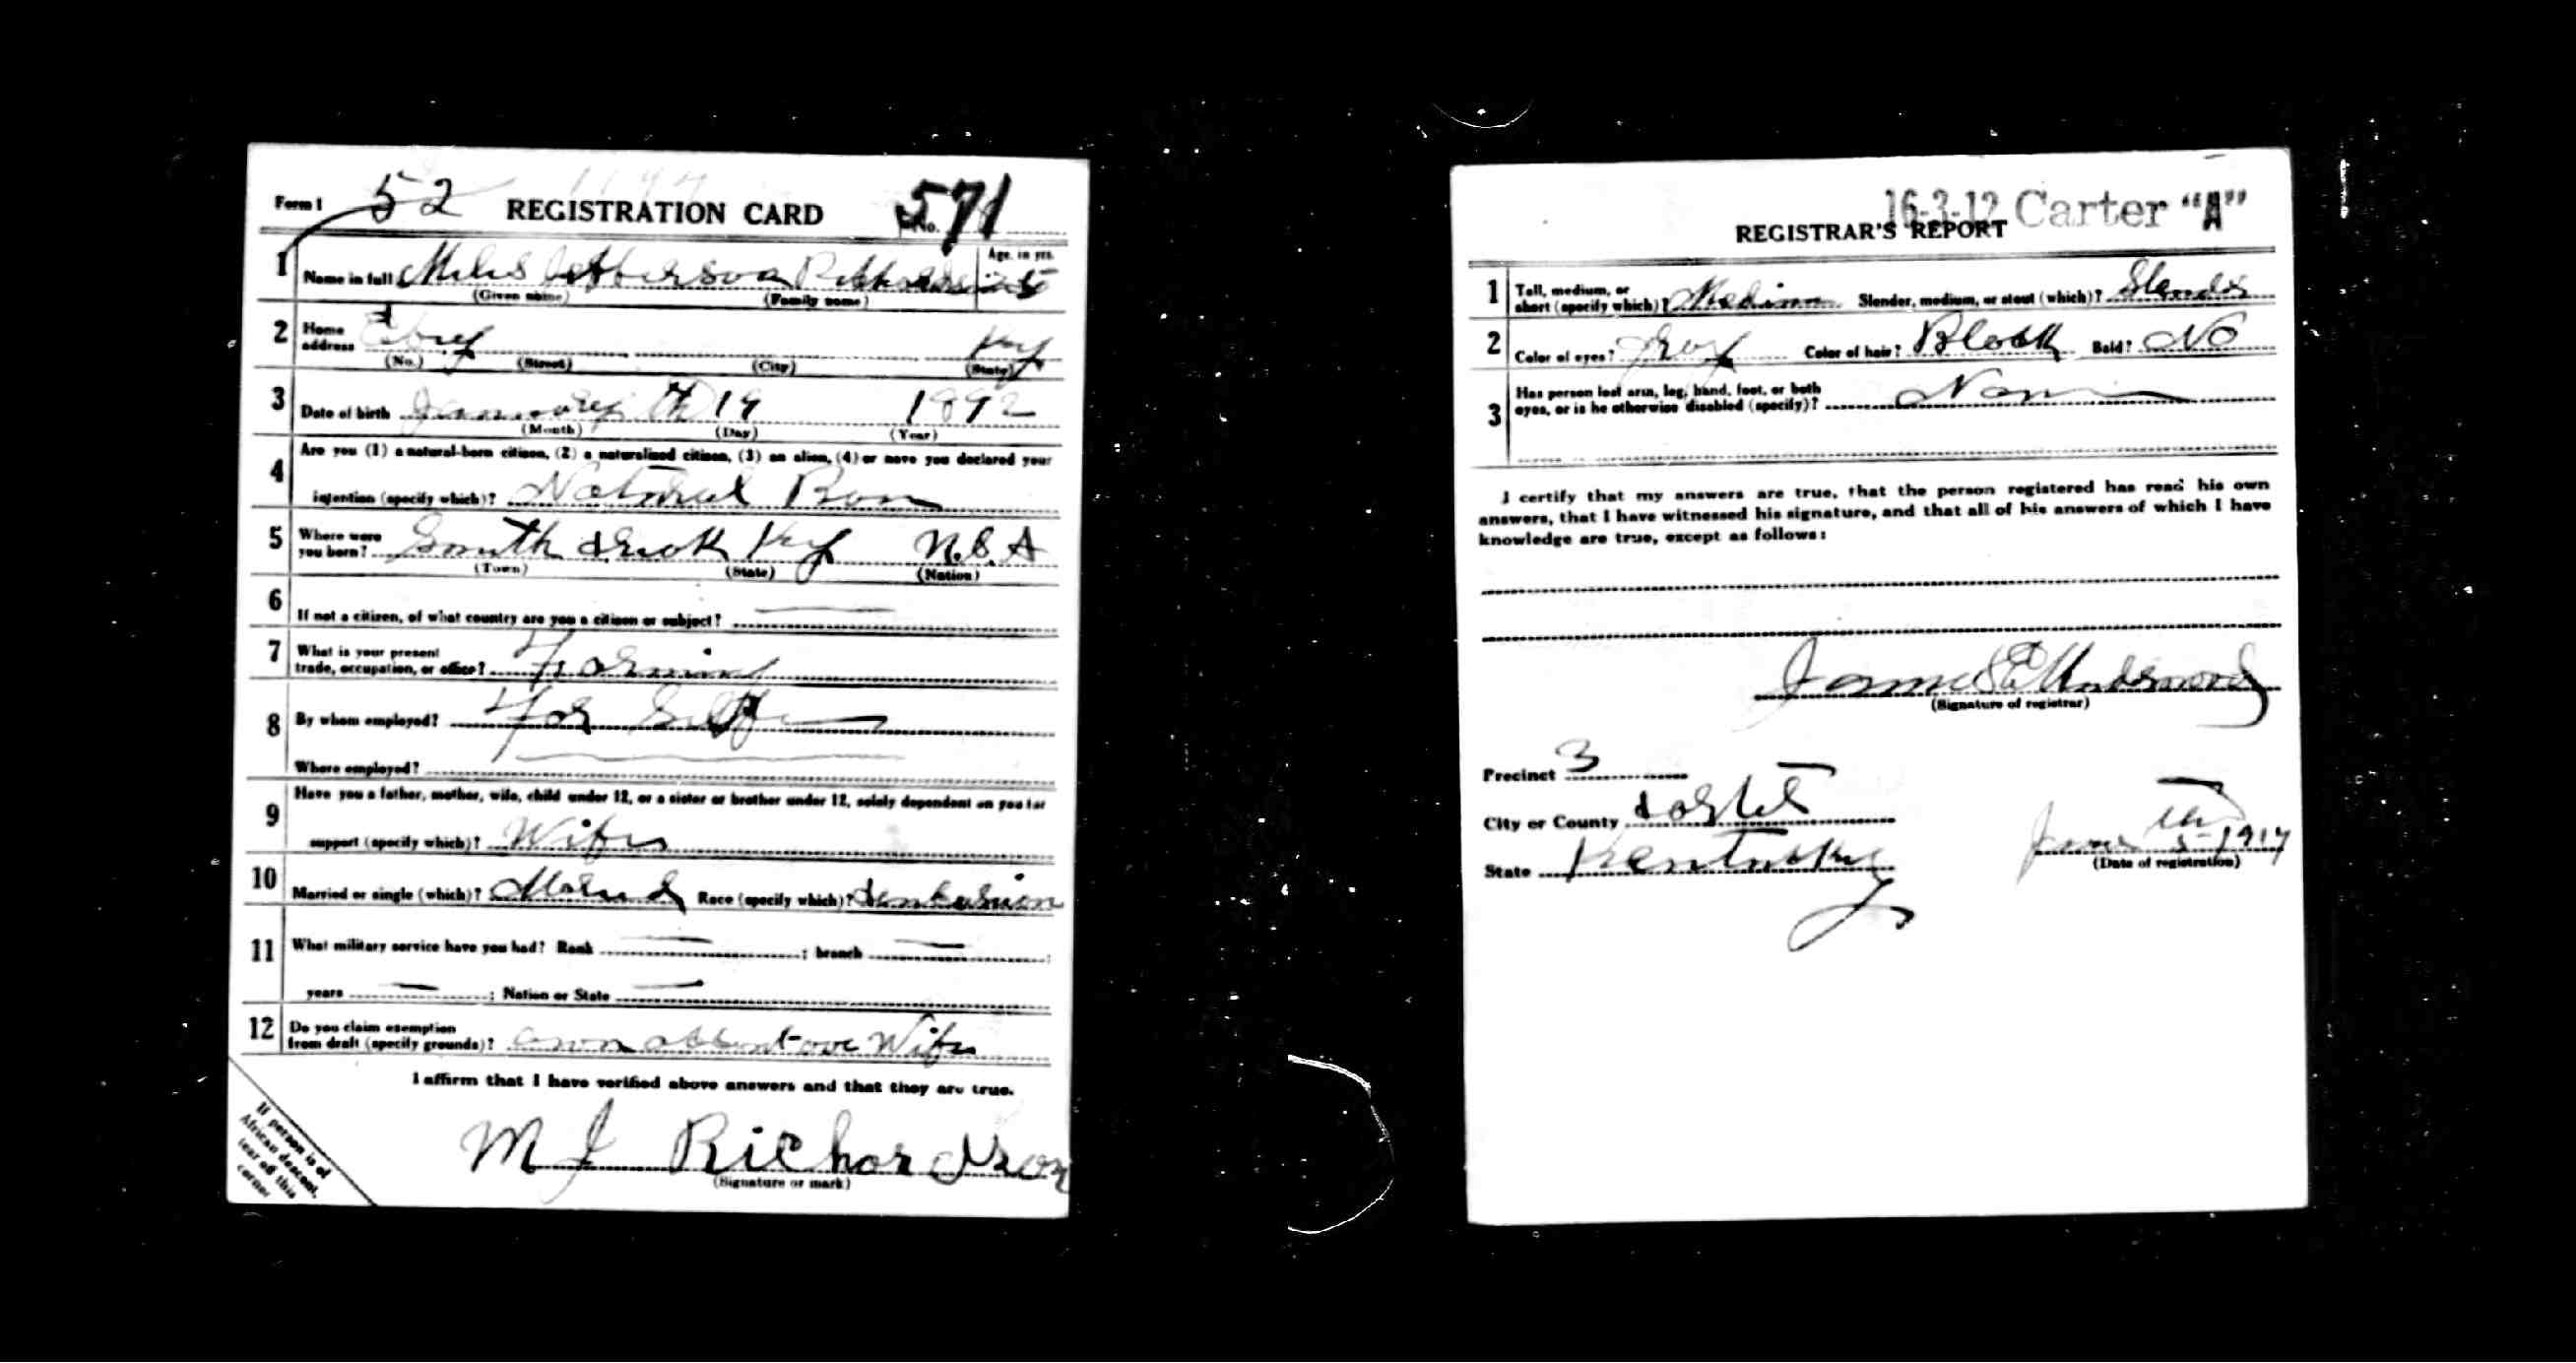 Form 1 52 REGISTRATION CARD No. 571
1 Name in full Miles Jefferson Richardson 25 Age, in yrs.
(Given name) (Family name)
2 Home address Ky
(No.) (Street) (City) (State)
3 Date of birth January th 19 1892
(Month) (Day) (Year)
4 Are you (1) a natural-born citizen, (2) a naturalized citizen, (3) an alien, (4) or have you declared your
intention (specify which)? Natural Born
5 Where were you born? Smith Ky U.S.A
(Town) (State) (Nation)
6 If not a citizen, of what country are you a citizen or subject? —
7 What is your present trade, occupation, or office? Farming
8 By whom employed? For Self
Where employed? —
9 Have you a father, mother, wife, child under 12, or a sister or brother under 12, solely dependent on you for
support (specify which)? Wife
10 Married or single (which)? Married Race (specify which)?
11 What military service have you had? Rank — ; branch — ;
years — ; Nation or State —
12 Do you claim exemption from draft (specify grounds)? Wife
I affirm that I have verified above answers and that they are true.
M J Richardson
(Signature or mark)
If person is of
African descent,
tear off this
corner
16-3-12 Carter "A"
REGISTRAR'S REPORT
1 Tall, medium, or short (specify which)? Medium Slender, medium, or stout (which)? Slender
2 Color of eyes? Gray Color of hair? Black Bald? No
3 Has person lost arm, leg, hand, foot, or both eyes, or is he otherwise disabled (specify)? None
I certify that my answers are true, that the person registered has read his own
answers, that I have witnessed his signature, and that all of his answers of which I have
knowledge are true, except as follows:
James E Underwood
(Signature of registrar)
Precinct 3
City or County Carter
State Kentucky
June 5th 1917
(Date of registration)